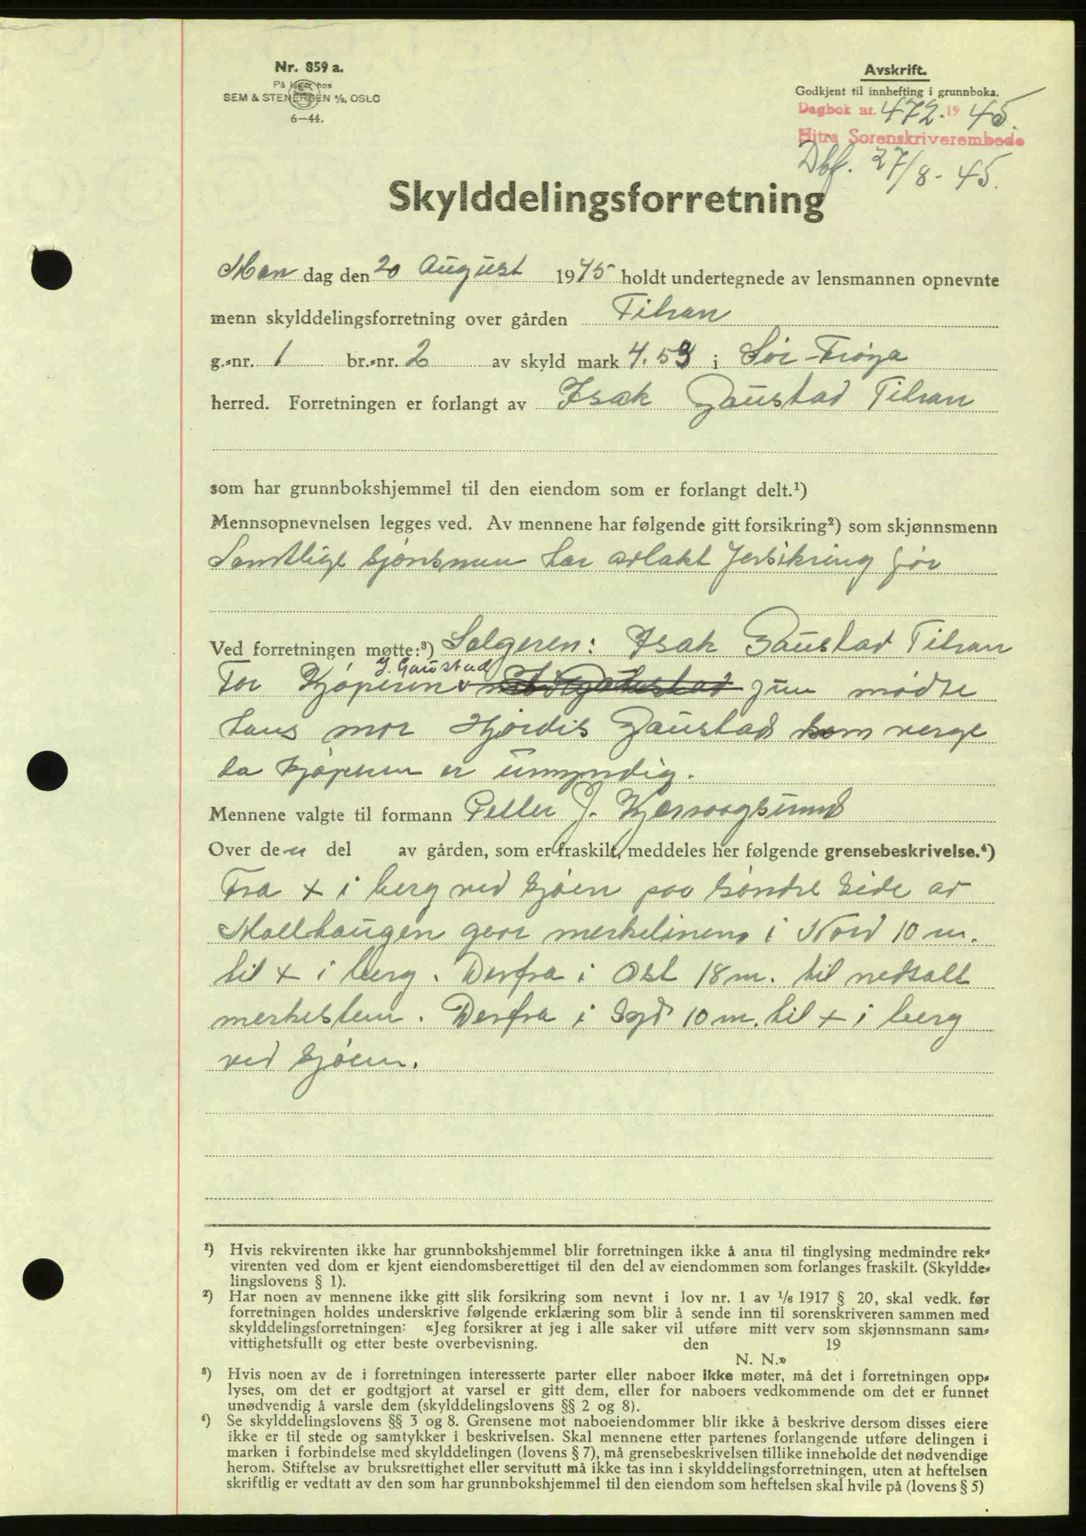 Nr. 859 a.
På lager hos
SEM & STENERSEN A/S, OSLO
6-44.
Avskrift.
Godkjent til innhefting i grunnboka.
Dagbok nr. 472. 1945.
Hitra Sorenskriverembede
Dbf. 27/8-45.
Skylddelingsforretning
Man dag den 20 August 1945 holdt undertegnede av lensmannen opnevnte
menn skylddelingsforretning over gården Titran
g.-nr. 1 br.-nr. 2 av skyld mark 4.53 i Sør-Frøya
herred. Forretningen er forlangt av Isak Gaustad Titran
som har grunnbokshjemmel til den eiendom som er forlangt delt.¹)
Mennsopnevnelsen legges ved. Av mennene har følgende gitt forsikring²) som skjønnsmenn
Samtlige sjønsmen har avlakt forsikring før
Ved forretningen møtte:³) Selgeren: Isak Gaustad Titran
J. Gaustad
For Kjøperen mødte
hans mor Hjørdis Gaustad som verge
da kjøperen er umyndig.
Mennene valgte til formann Petter J. Kjervaagsund
Over den del av gården, som er fraskilt, meddeles her følgende grensebeskrivelse.⁴)
Fra + i berg ved sjøen paa søndre side av
Mollhaugen gaar merkelinen i Nord 10 m.
til + i berg. Derfra i Øst 18 m. til nedsatt
merkesten. Derfra i Syd 10 m. til + i berg
ved sjøen.
¹) Hvis rekvirenten ikke har grunnbokshjemmel blir forretningen ikke å anta til tinglysing medmindre rek-
virenten ved dom er kjent eiendomsberettiget til den del av eiendommen som forlanges fraskilt. (Skyldde-
lingslovens § 1).
²) Har noen av mennene ikke gitt slik forsikring som nevnt i lov nr. 1 av 1/6 1917 § 20, skal vedk. før
forretningen holdes underskrive følgende erklæring som blir å sende inn til sorenskriveren sammen med
skylddelingsforretningen: «Jeg forsikrer at jeg i alle saker vil utføre mitt verv som skjønnsmann sam-
vittighetsfullt og etter beste overbevisning. den 19
N. N.»
³) Hvis noen av de i forretningen interesserte parter eller naboer ikke møter, må det i forretningen opp-
lyses, om det er godtgjort at varsel er gitt dem, eller for naboers vedkommende om det er funnet
unødvendig å varsle dem (skylddelingslovens §§ 2 og 8).
⁴) Se skylddelingslovens §§ 3 og 8. Grensene mot naboeiendommer blir ikke å beskrive dersom disses eiere
ikke er til stede og samtykker i beskrivelsen. Skal mennene etter partenes forlangende utføre delingen i
marken i forbindelse med skylddelingen (lovens § 7), må grensebeskrivelsen tillike inneholde det nødvendige
herom. Stiftelse av bruksrettighet eller servitutt må ikke tas inn i skylddelingsforretningen, uten at heftelsen
skriftlig er vedtatt av den som har grunnbokshjemmel til den eiendom som heftelsen skal hvile på (lovens § 5)